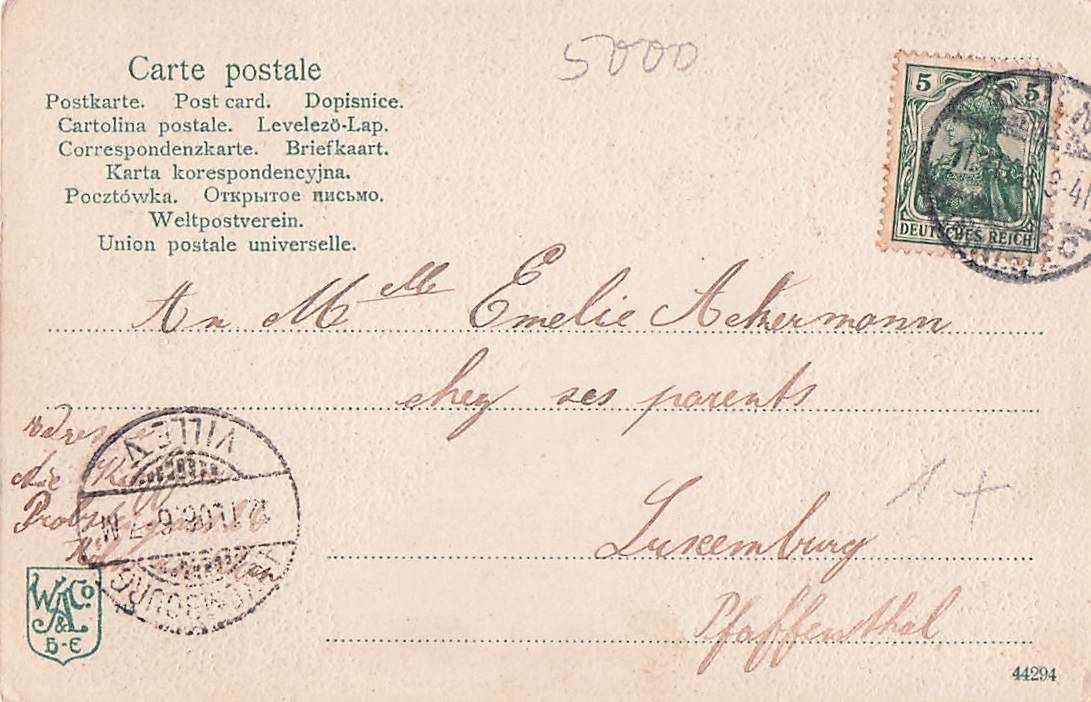 Carte postale
Postkarte. Post card. Dopisnice.
Cartolina postale. Levelező-Lap.
Correspondenzkarte. Briefkaart.
Karta korespondencyjna.
Pocztówka. Открытое письмо.
Weltpostverein.
Union postale universelle.
0005
5 5
DEUTSCHES REICH
3-4
An Mlle Emelie Ackermann
chez ses parents
Luxemburg
Pfaffenthal
VILLE
6-7 M
LUXEMBOURG
W A & Co
B-E
44294